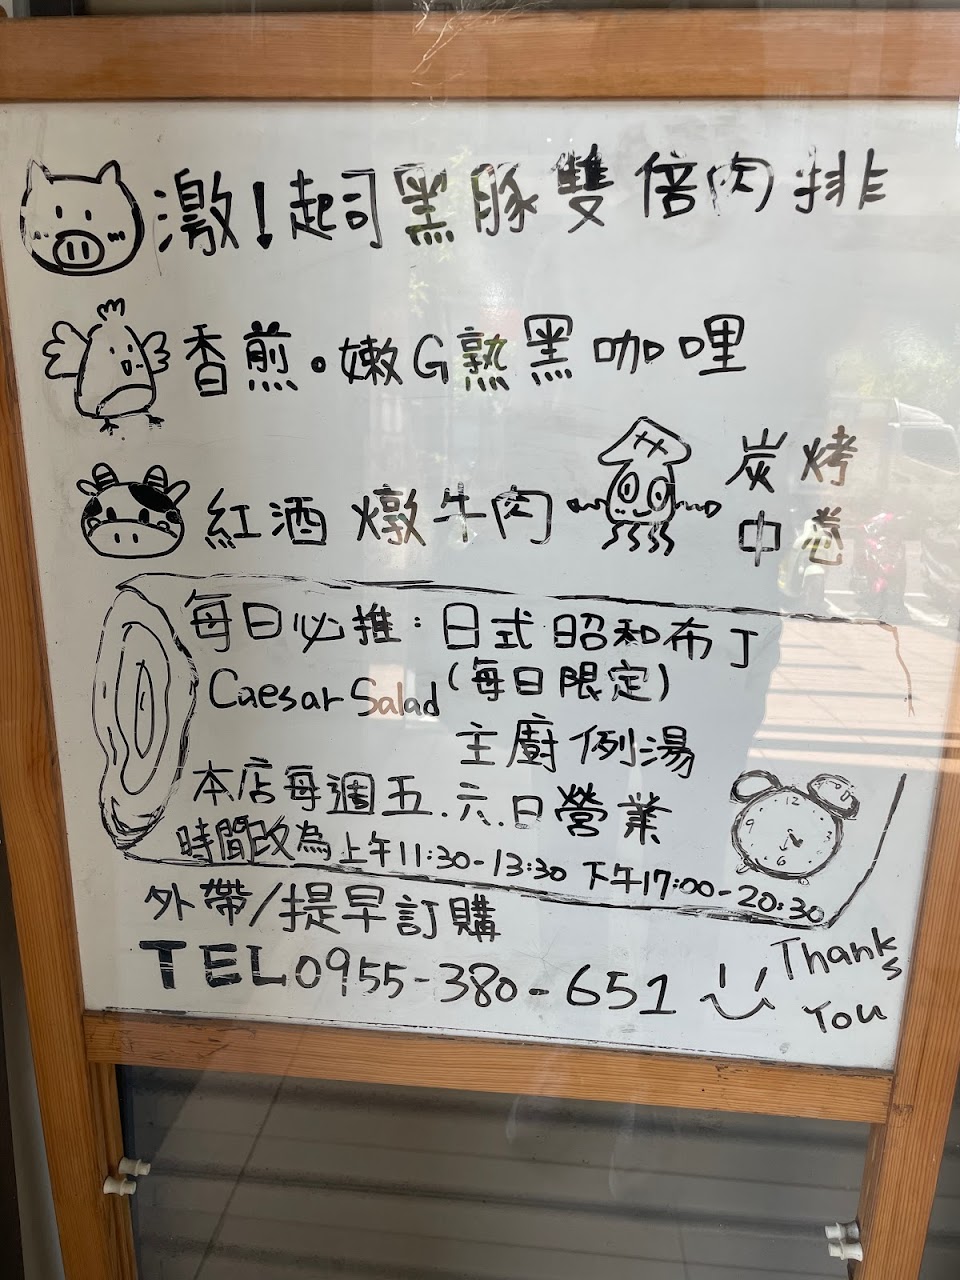 激!起司黑豚雙倍肉排
香煎。嫩G熟黑咖哩
紅酒燉牛肉
炭烤
中卷
每日必推:日式昭和布丁
Caesar Salad (每日限定)
主廚例湯
本店每週五.六.日營業
時間改為上午11:30-13:30 下午17:00-20:30
外帶/提早訂購
TEL0955-380-651
Thanks
You